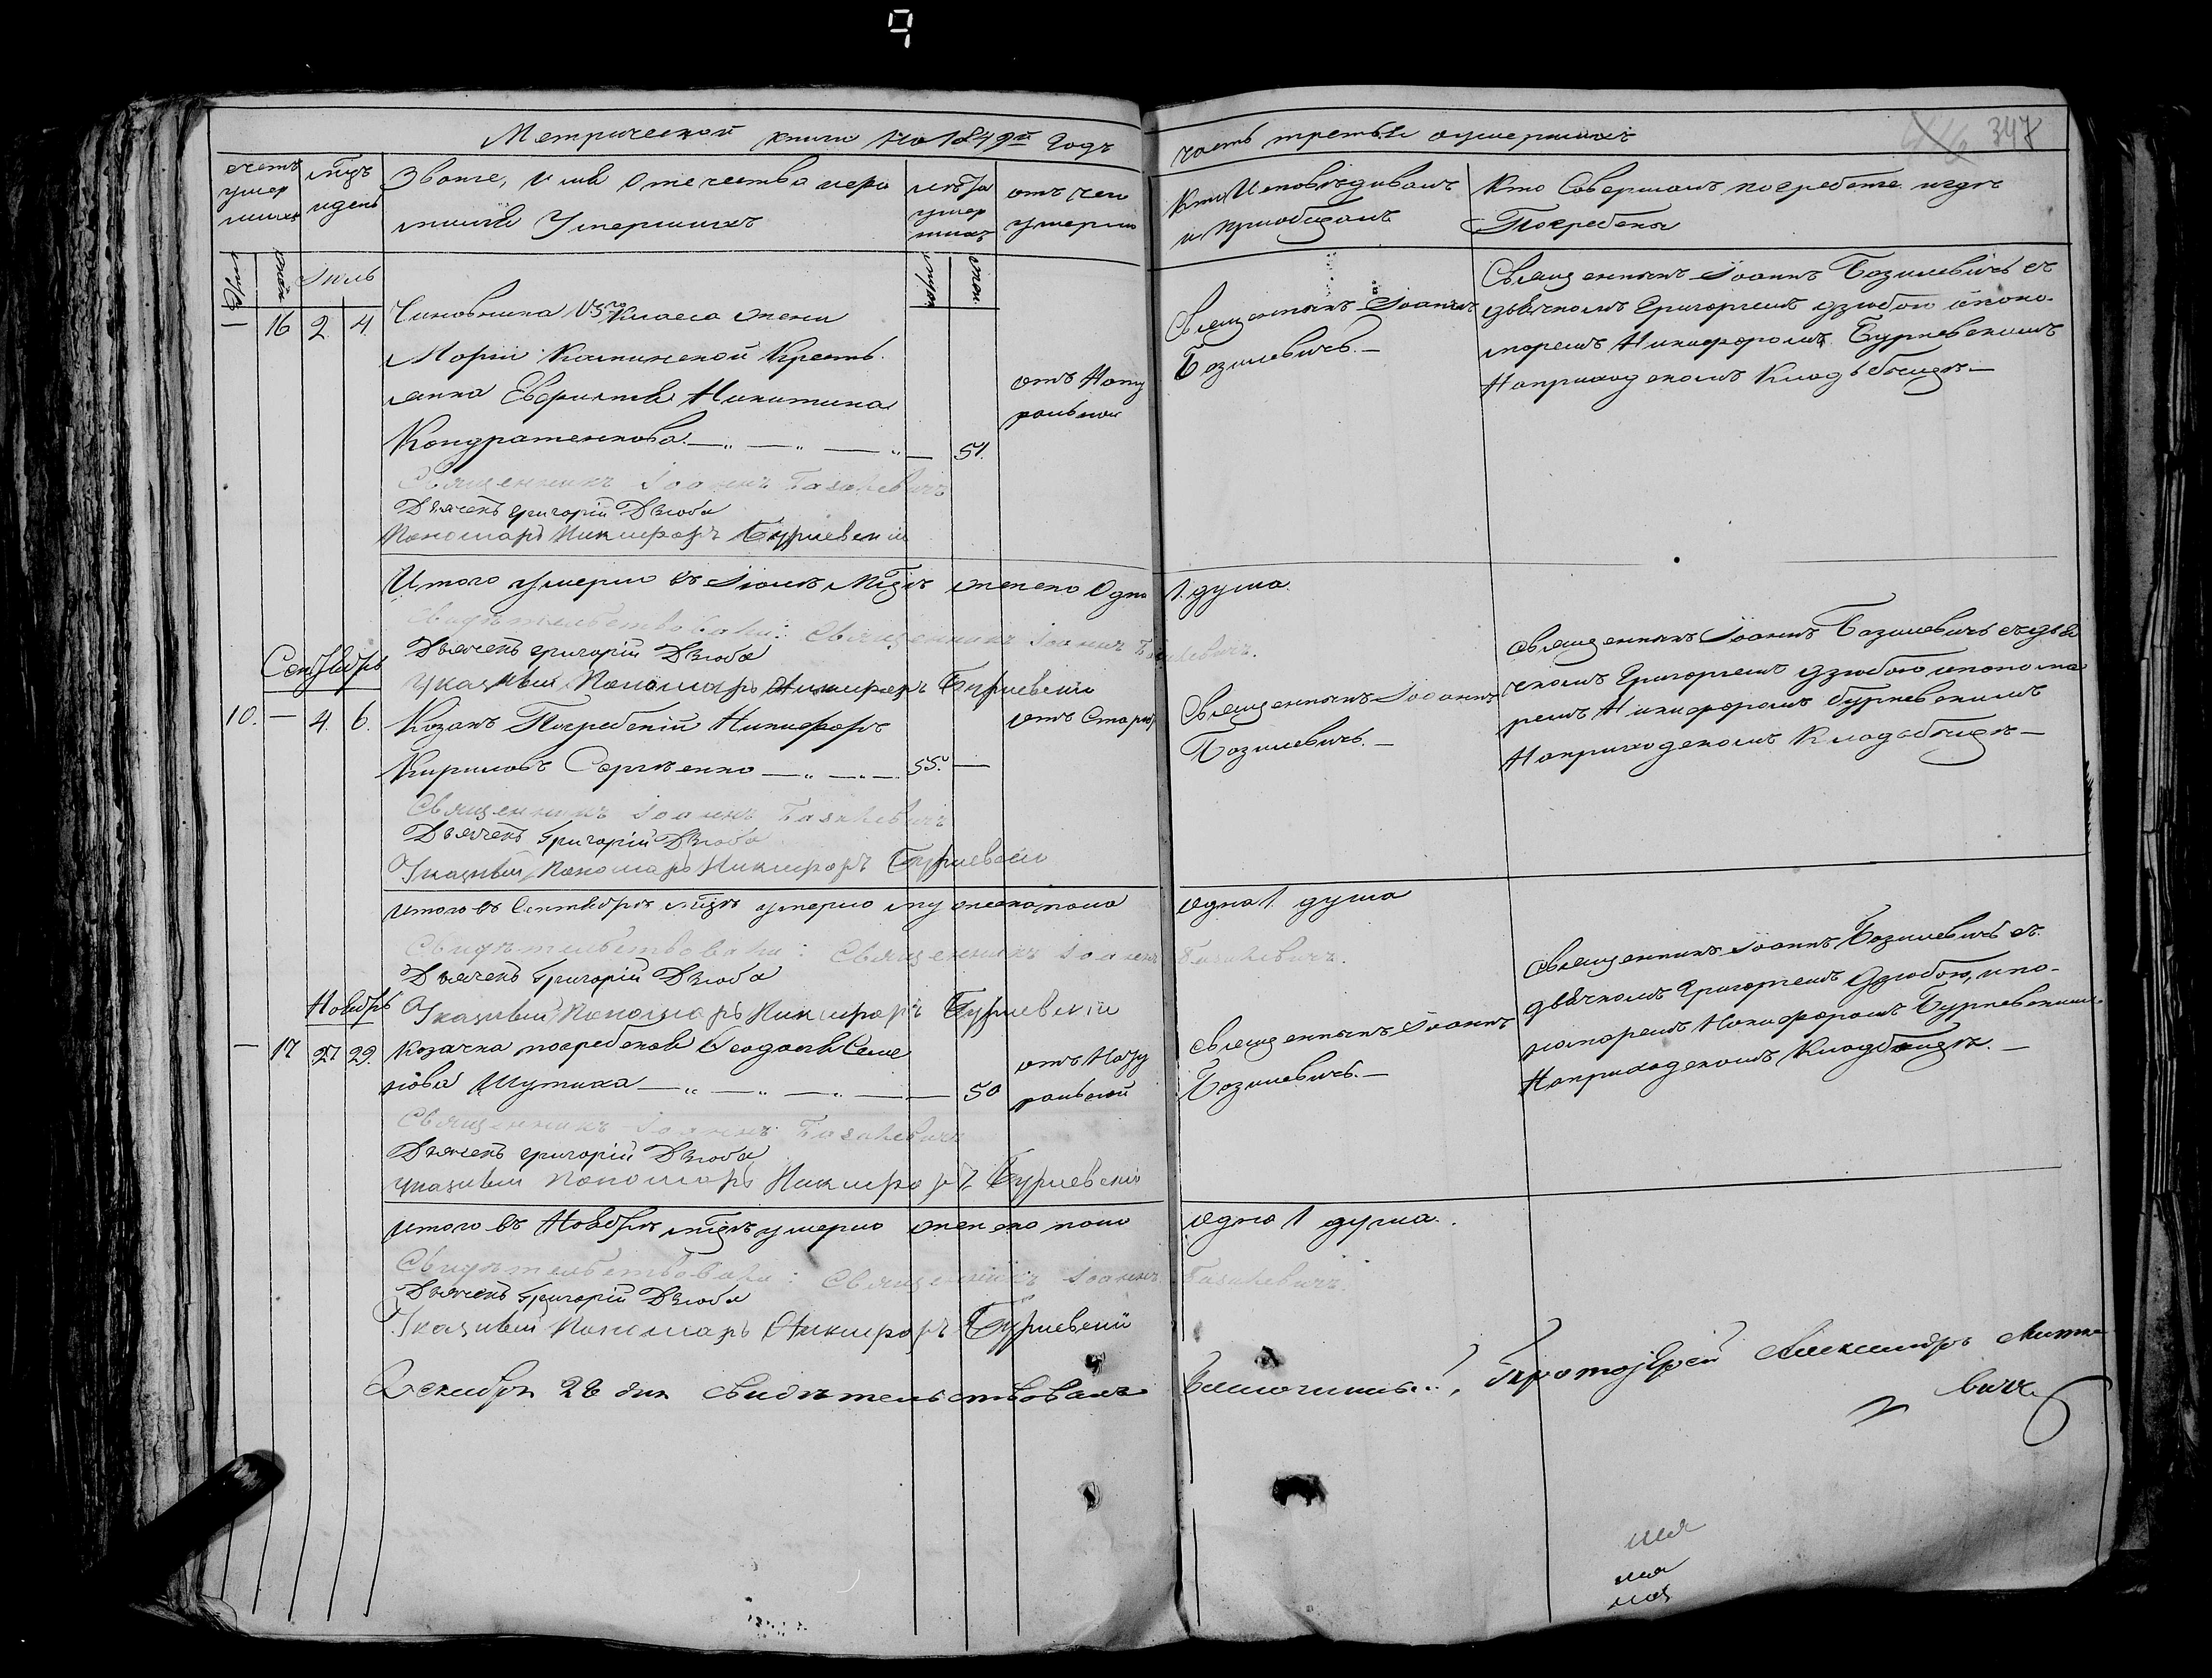 Метрической книги на 1849й годъ
часть третья о умершихъ
347
счетъ умер шихъ
мцъ и день
Званіе, имя отечество и фа
милія Умершихъ
лѣта умер шихъ
отъ чего умерли
Кто Исповѣдывалъ
и пріобщалъ
Кто Совершалъ погребеніе и гдѣ
Погребены
муж.
жен.
Іюль
муж.
жен.
— 16 2. 4.
Чиновника Класса жены
Маріи Каминской Кресть
янка Никитина
Кондратенкова 51.
отъ Нату
ральной
Священникъ Іоаннъ
Базилевичъ.—
Священникъ Іоаннъ Базилевичъ съ
дьячкомъ Григоріемъ Дзюбою и поно-
маремъ Никифоромъ Бурневскимъ
На приходскомъ Кладбищѣ—
Священникъ Іоаннъ Базилевичъ
Дьячекъ Григорій Дзюба
Пономарь Никифоръ Бурневскій
Итого умерло въ Іюлѣ мцѣ женска одна 1. душа.
Свидѣтельствовали: Священникъ Іоаннъ Базилевичъ.
Дьячекъ Григорій Дзюба
Указный Пономарь Никифоръ Бурневскій
Сентябрь
10. — 4. 6.
Козакъ Погребскій Никифоръ
Кириловъ Сергіенко 55. —
отъ Старо
Священникъ Іоаннъ
Базилевичъ.—
Священникъ Іоаннъ Базилевичъ съ дья
чкомъ Григоріемъ Дзюбою и понома
ремъ Никифоромъ Бурневскимъ
На приходскомъ Кладбищѣ—
Священникъ Іоаннъ Базилевичъ
Дьячекъ Григорій Дзюба
Указный Пономарь Никифоръ Бурневскій
Итого въ Сентябрѣ мцѣ умерло мужеска пола одна 1 душа
Свидѣтельствовали: Священникъ Іоаннъ Базилевичъ.
Дьячекъ Григорій Дзюба
Указный Пономарь Никифоръ Бурневскій
Ноябрь
— 17 27 29.
Козачка погребская Феодосія Семе
нова Шутика 50
отъ Нату
ральной
Священникъ Іоаннъ
Базилевичъ.—
Священникъ Іоаннъ Базилевичъ съ
дьячкомъ Григоріемъ Дзюбою, и по-
номаремъ Никифоромъ Бурневскимъ
На приходскомъ Кладбищѣ.—
Священникъ Іоаннъ Базилевичъ
Дьячекъ Григорій Дзюба
Указный Пономарь Никифоръ Бурневскій
Итого въ Ноябрѣ мцѣ умерло женска пола одна 1 душа.
Свидѣтельствовали: Священникъ Іоаннъ Базилевичъ.
Дьячекъ Григорій Дзюба
Указный Пономарь Никифоръ Бурневскій
Декабря 28 дня свидѣтельствовалъ Благочинный, Протоіерей Александръ